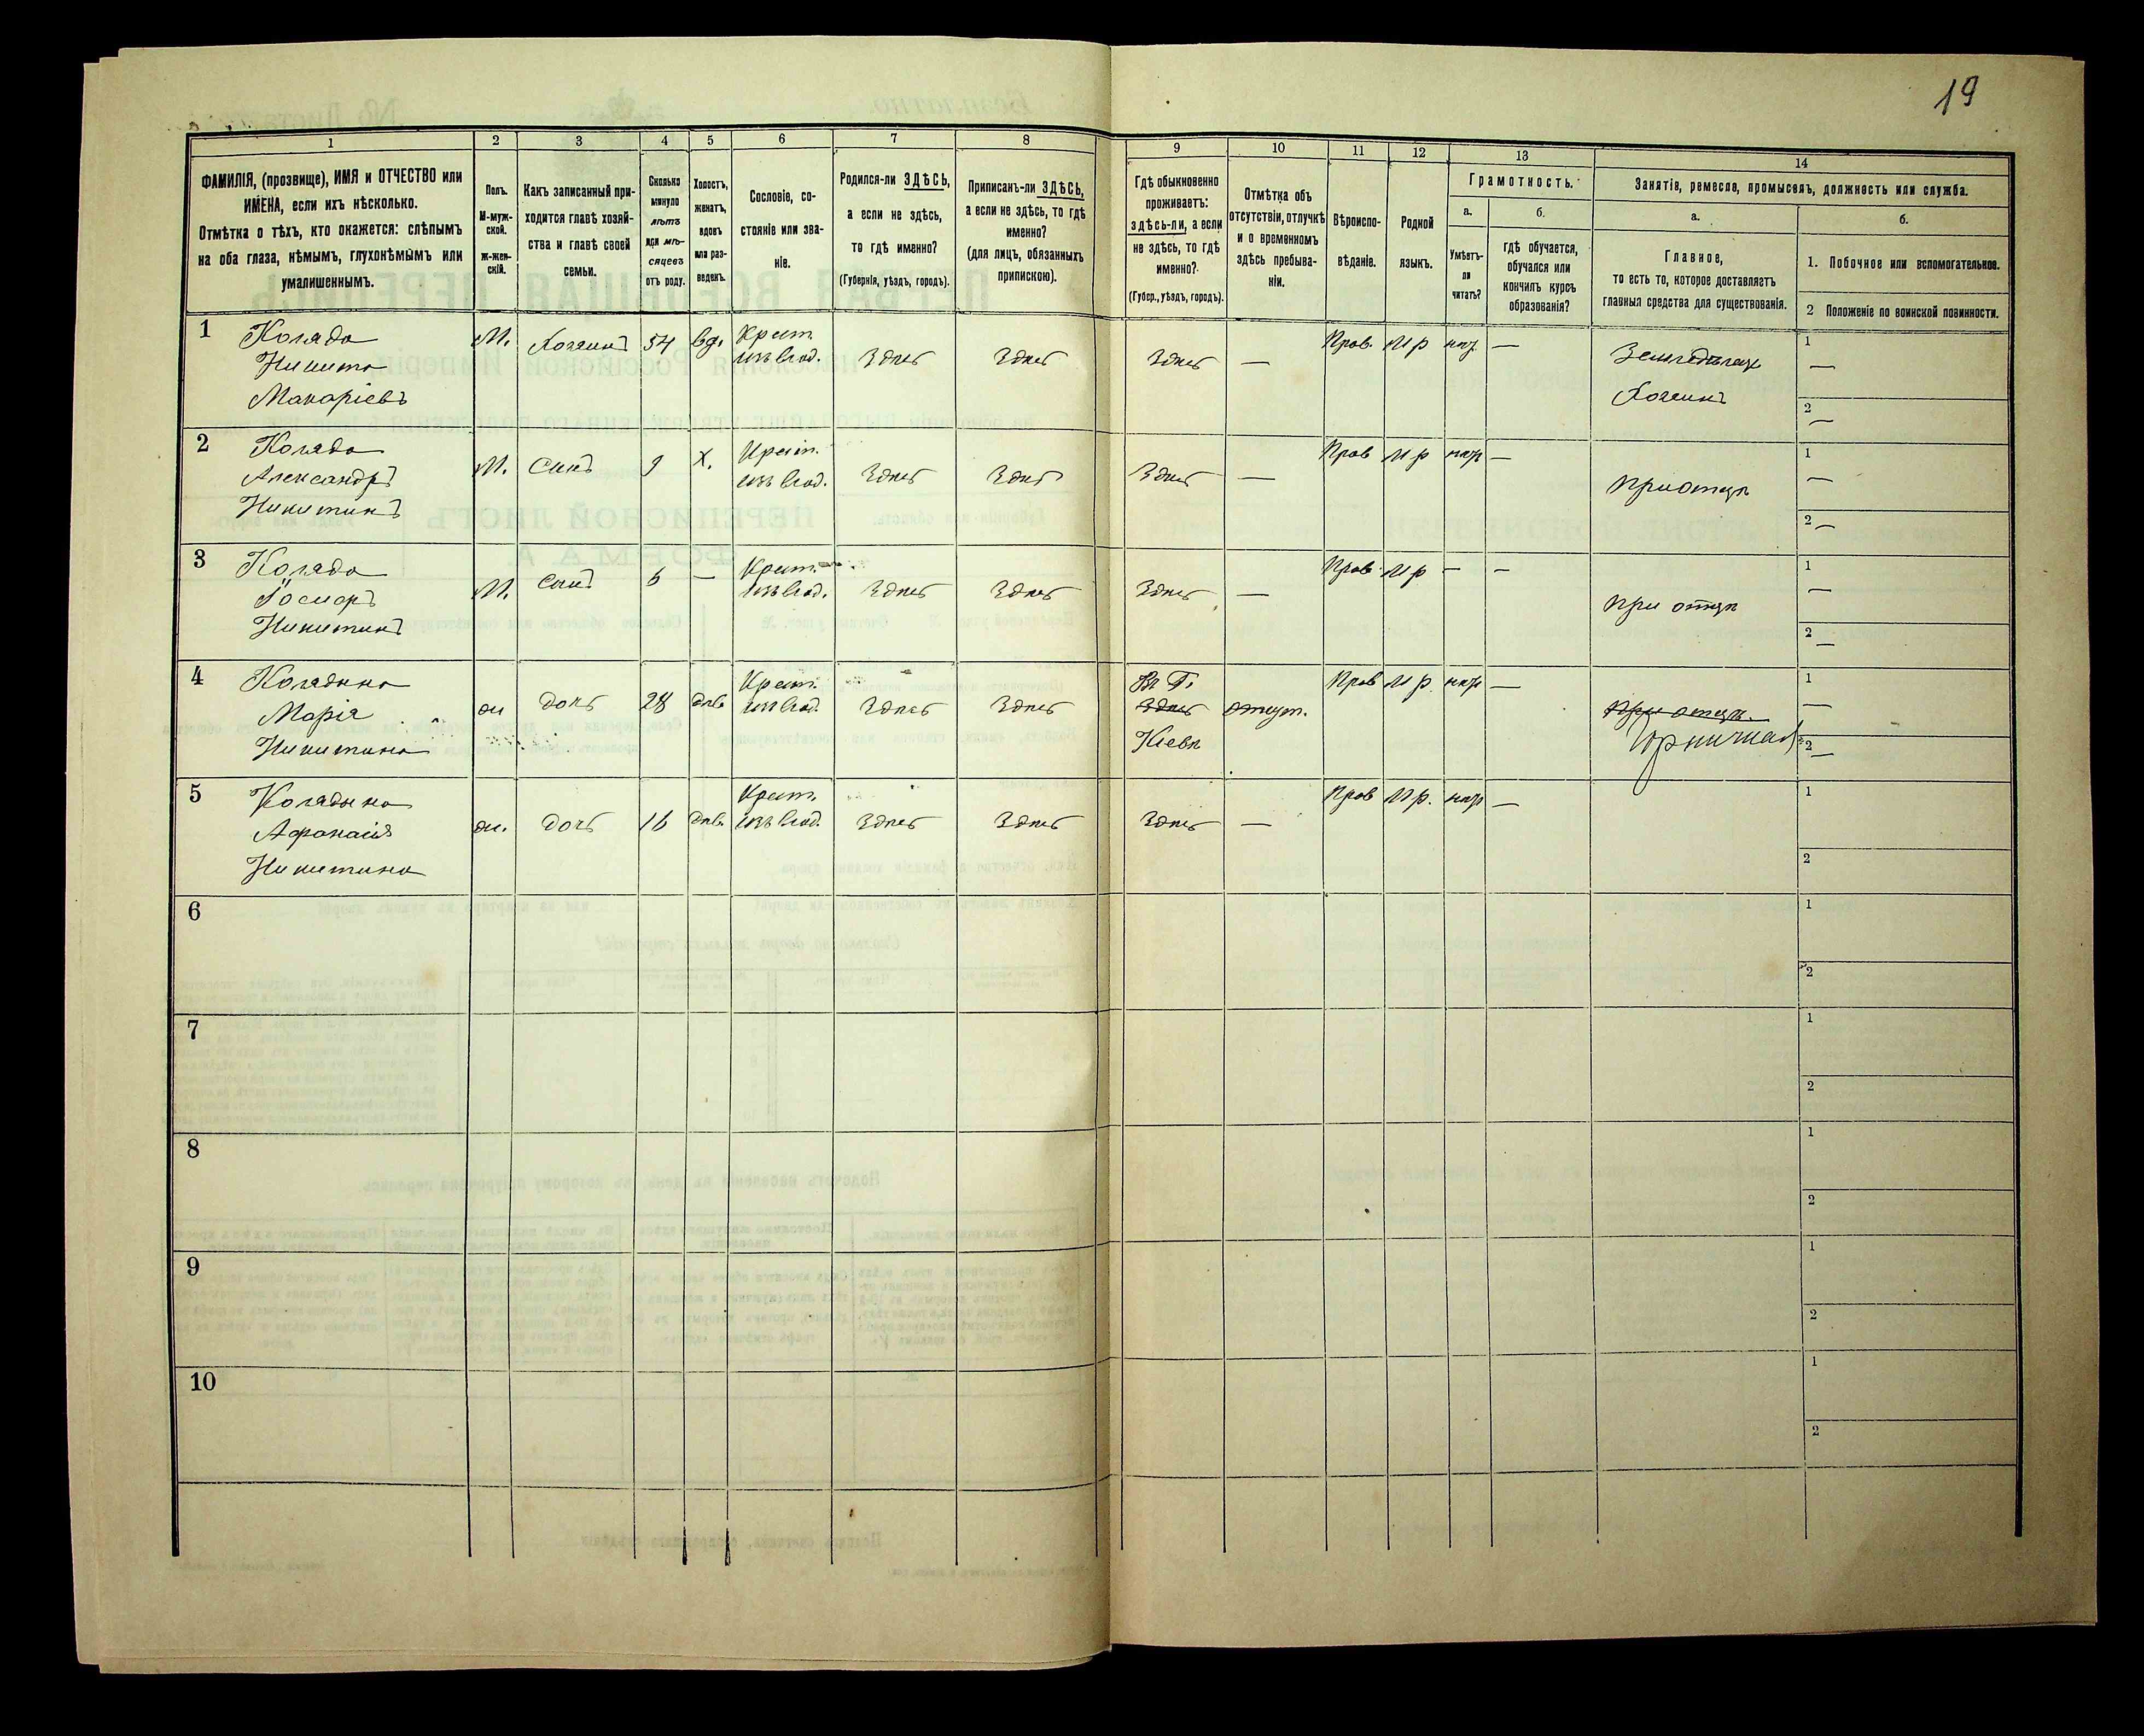 19
1 2 3 4 5 6 7 8 9 10 11 12 13 14
ФАМИЛІЯ, (прозвище), ИМЯ и ОТЧЕСТВО или
ИМЕНА, если ихъ нѣсколько.
Отмѣтка о тѣхъ, кто окажется: слѣпымъ
на оба глаза, нѣмымъ, глухонѣмымъ или
умалишеннымъ.
Полъ.
М-муж-
ской.
ж-жен-
скій.
Какъ записанный при-
ходится главѣ хозяй-
ства и главѣ своей
семьи.
Сколько
минуло
лѣтъ
или мѣ-
сяцевъ
отъ роду.
Холостъ,
женатъ,
вдовъ
или раз-
веденъ.
Сословіе, со-
стояніе или зва-
ніе.
Родился-ли ЗДѢСЬ,
а если не здѣсь,
то гдѣ именно?
(Губернія, уѣздъ, городъ).
Приписанъ-ли ЗДѢСЬ,
а если не здѣсь, то гдѣ
именно?
(для лицъ, обязанныхъ
припискою).
Гдѣ обыкновенно
проживаетъ:
здѣсь-ли, а если
не здѣсь, то гдѣ
именно?
(Губер., уѣздъ, городъ).
Отмѣтка объ
отсутствіи, отлучкѣ
и о временномъ
здѣсь пребыва-
ніи.
Вѣроиспо-
вѣданіе.
Родной
языкъ.
Грамотность.
а.
Умѣетъ-
ли
читать?
б.
гдѣ обучается,
обучался или
кончилъ курсъ
образованія?
Занятіе, ремесло, промыселъ, должность или служба.
а.
Главное,
то есть то, которое доставляетъ
главныя средства для существованія.
б.
1. Побочное или вспомогательное.
2 Положеніе по воинской повинности.
1 Коляда М. Хозяинъ 54 вд. Крест. Прав. Мр нѣт — 1
Никита изъ влад. Здѣсь Здѣсь Здѣсь — Земледѣлецъ —
Макаріевъ Хозяинъ 2 —
2 Коляда М. Сынъ 9 Х. Крест. Прав Мр нѣт — 1
Александръ изъ влад. Здѣсь Здѣсь Здѣсь — при отцѣ —
Никитинъ 2 —
3 Коляда М. Сынъ 6 — Крест. Прав Мр — — 1
изъ влад. Здѣсь Здѣсь Здѣсь — при отцѣ —
Никитинъ 2 —
4 Колядина ж дочь 28 дѣв. Крест. Въ Г. Прав Мр. нѣт — 1
Марія изъ влад. Здѣсь Здѣсь Здѣсь отсут. при отцѣ. —
Никитина Кіевѣ Горничная 2 —
5 Колядина ж. дочь 16 дѣв. Крест. Прав Мр. нѣт — 1
Афанасія изъ влад. Здѣсь Здѣсь Здѣсь —
Никитина 2
6 1
2
7 1
2
8 1
2
9 1
2
10 1
2